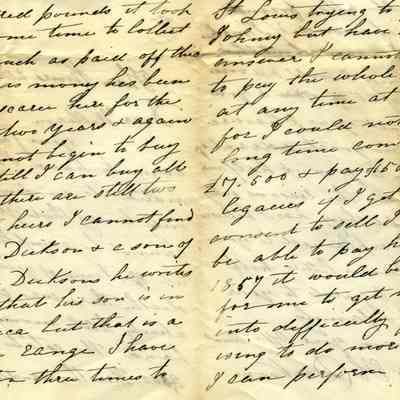 red pounds it took
me time to collect
uch as paid off the
is money has been
scarce here for the
two years & again
not begin to buy
till I can buy all
there are still two
heirs I cannot find
Dickson & a son of
Dicksons he writes
that his son is in
ica but that is a
range I have
three times to
St Louis trying to
Johny but have
answear I cannot
to pay the whole
at any time at
for I could not
long time com
£7.500 & pay $50
legacies if I got
consent to sell I
be able to pay h
1857 it would be
for me to get
into difficulty
ising to do more
I can perform